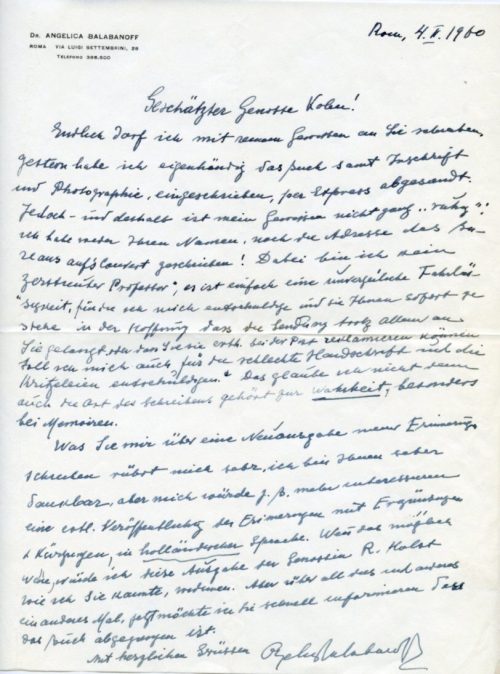 DR. ANGELICA BALABANOFF
ROMA VIA LUIGI SETTEMBRINI, 26
TELEFONO 388.500
Rom, 4.II.1960
Geschätzter Genosse Kolen!
Endlich darf ich mit reinem Gewissen an Sie schreiben,
gestern habe ich eigenhändig das Buch samt Inschrift
und Photographie, eingeschrieben, per Express abgesandt.
Jedoch - und deshalb ist mein Gewissen nicht ganz "ruhig":
ich habe weder Ihren Namen, noch die Adresse des Bu-
reaus aufs Couvert geschrieben! Dabei bin ich kein
"zerstreuter Professor", es ist einfach eine unverzeihliche Fahrläs-
sigkeit, für die ich mich entschuldige und sie Ihnen sofort ge-
stehe in der Hoffnung dass die Sendung trotz allem an
Sie gelangt, oder dass Sie sie evtl. bei der Post reklamieren können
Soll ich mich auch für die schlechte Handschrift und die
Kritzeleien entschuldigen? Das glaube ich nicht denn
auch die Art des Schreibens gehört zur Wahrheit, besonders
bei Memoiren.
Was Sie mir über eine Neuausgabe meiner Erinnerungen
schreiben rührt mich sehr, ich bin Ihnen sehr
dankbar, aber mich würde z. B. mehr interessieren
eine evtl. Veröffentlichung der Erinnerungen mit Ergänzungen
& Kürzungen, in holländischer Sprache. Wenn das möglich
wäre, würde ich diese Ausgabe der Genossin R. Holst
wie ich sie kannte, widmen. Aber über all dies und anderes
ein anderes Mal, jetzt möchte ich Sie schnell informieren dass
das Buch abgegangen ist.
Mit herzlichen Grüssen Angelica Balabanoff